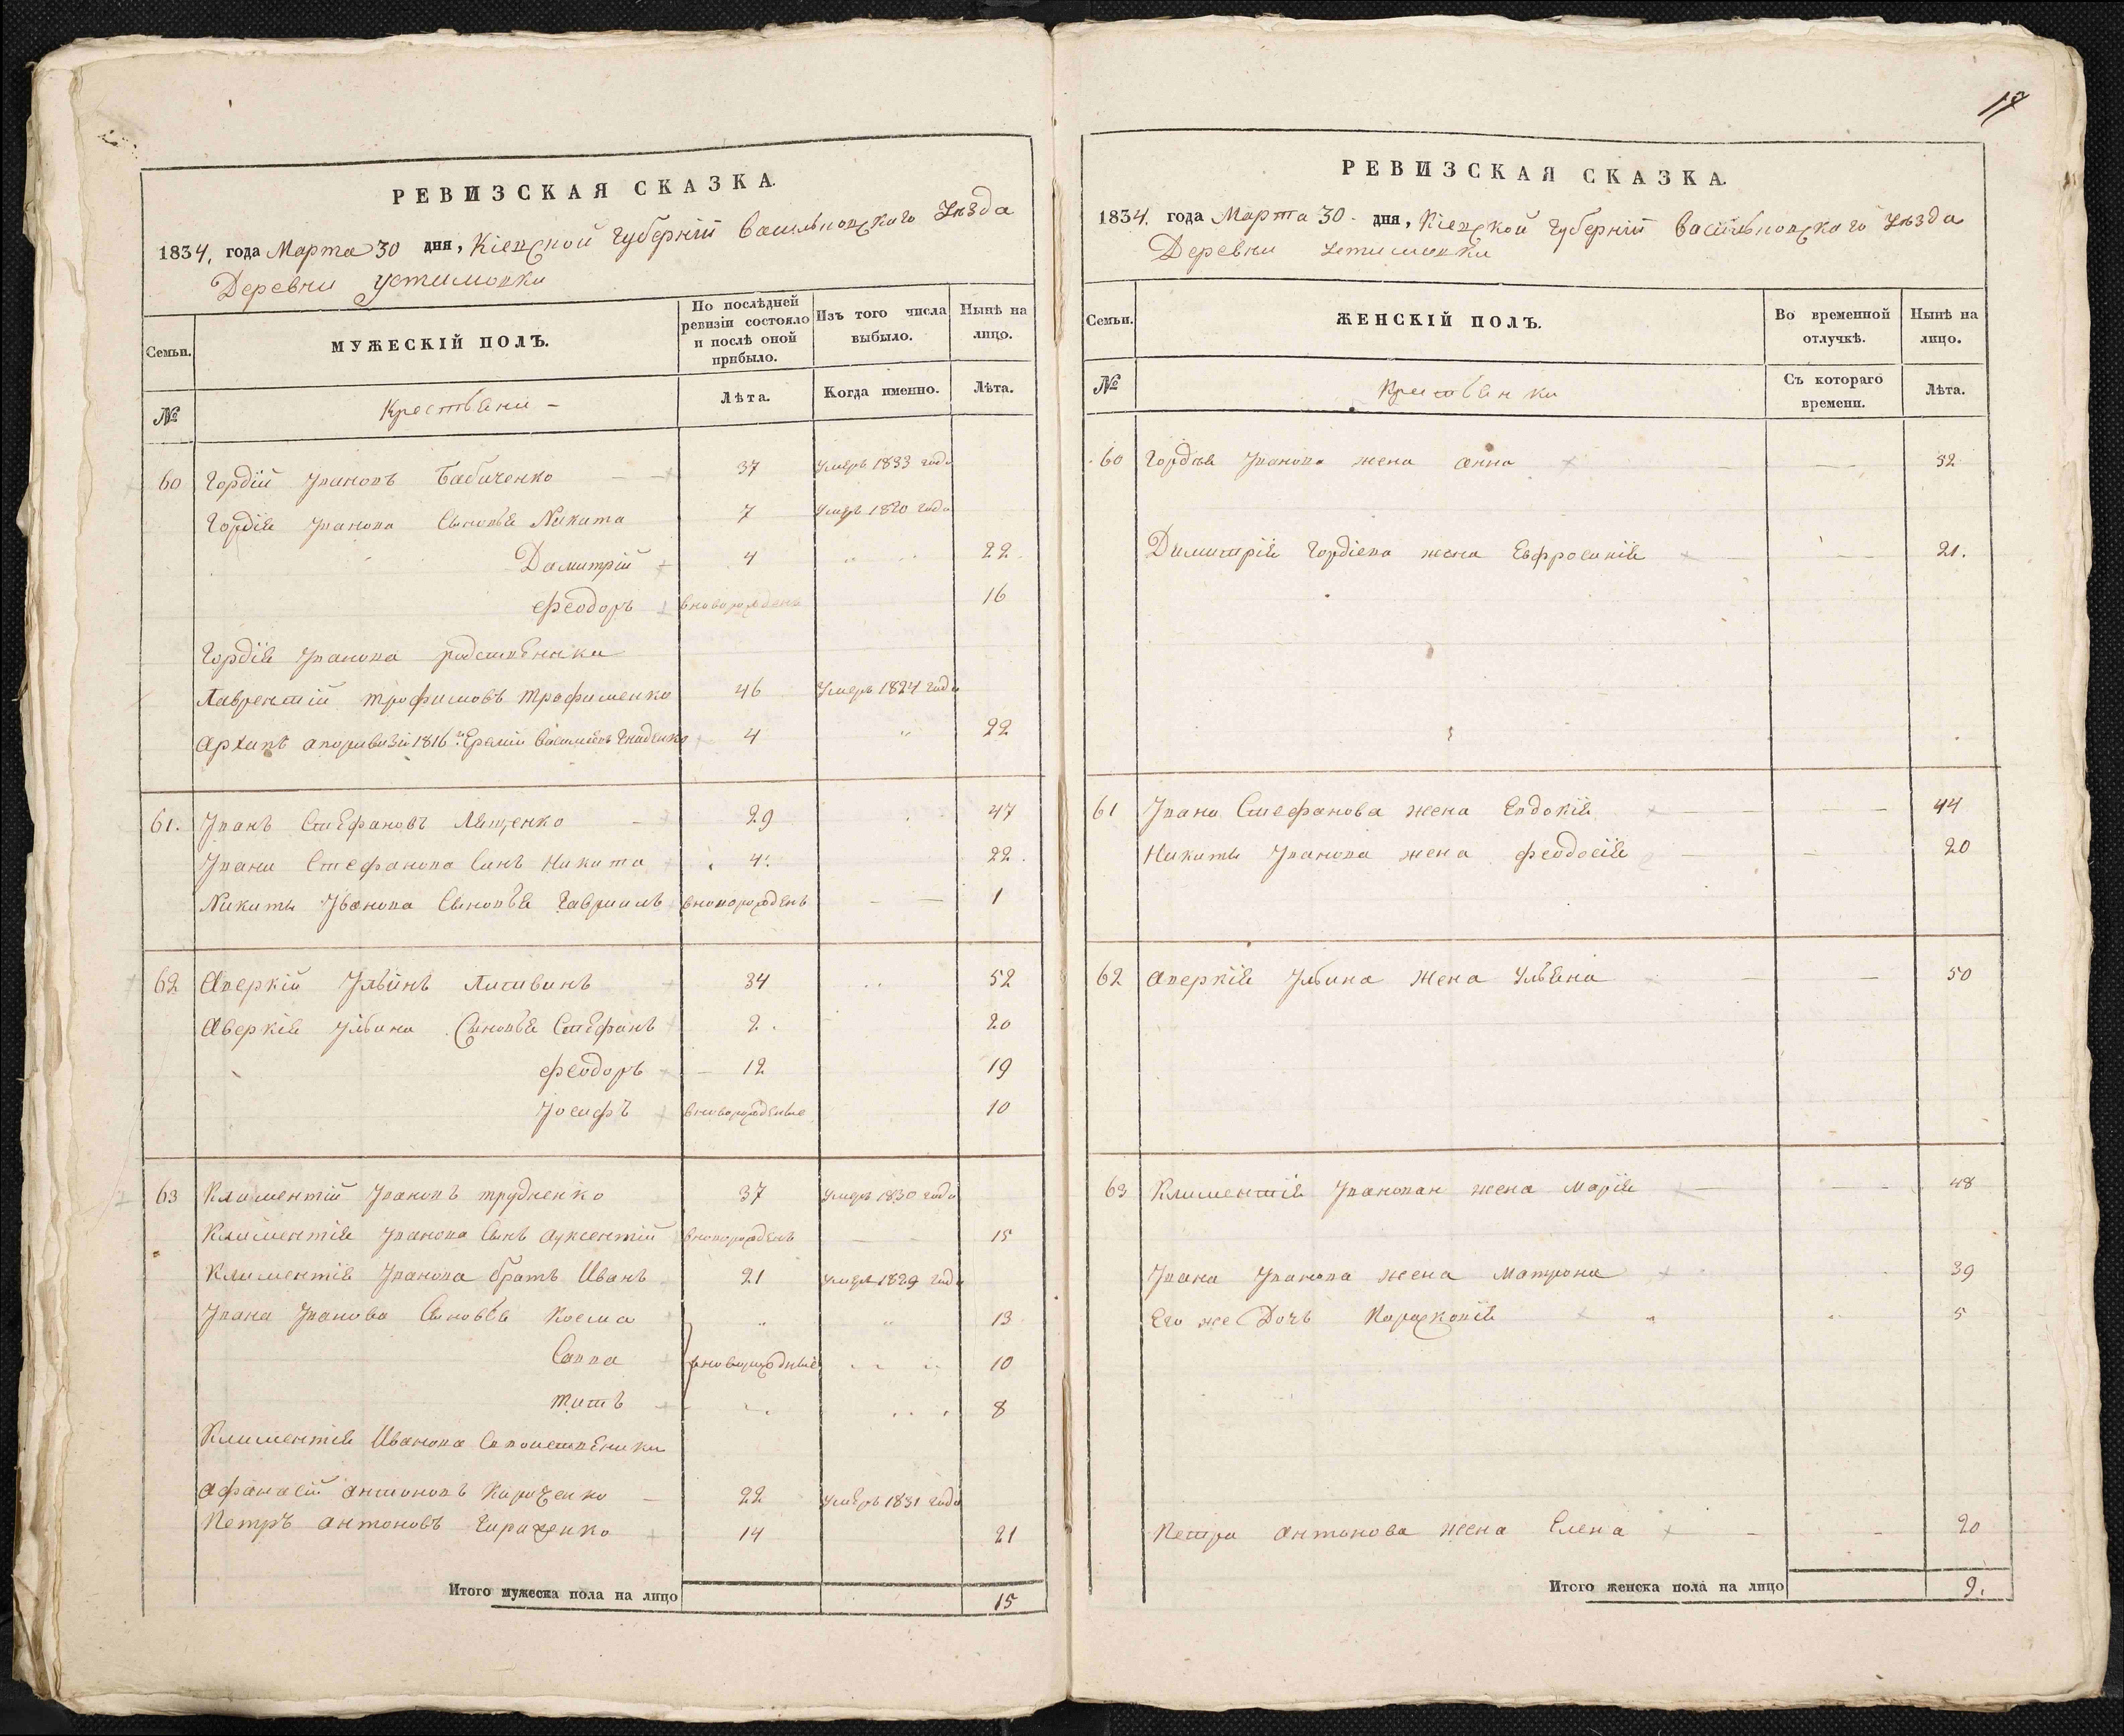 РЕВИЗСКАЯ СКАЗКА.
1834. года Марта 30 дня, Кіевской Губерніи Васильковскаго Уѣзда
Деревни Устимовки
Семьи.
МУЖЕСКІЙ ПОЛЪ.
По послѣдней ревизіи состояло и послѣ оной прибыло.
Изъ того числа выбыло.
Нынѣ на лицо.
№
Крестьяни
Лѣта.
Когда именно.
Лѣта.
60 Гордій Ивановъ Бабиченко 37 Умеръ 1833 года
Гордія Иванова Сыновья Никита 7 Умеръ 1820 года
Димитрій 4 22
Феодоръ вноворожденъ 16
Гордія Иванова родственники
Лаврентій Трофимовъ Трофименко 46 Умеръ 1824 года
Архипъ 1816 Еремій 4 22
61. Иванъ Стефановъ Лященко 29 47
Ивана Стефанова Синъ Никита 4. 22.
Никиты Иванова Сыновья Гавриилъ вноворожденъ 1
62 Аверкій Ильинъ Литвинъ 34 52
Аверкія Ильина Сыновья Стефанъ 2. 20
Феодоръ 12 19
Іосифъ вноворожденые 10
63 Климентій Ивановъ Трудненко 37 Умеръ 1830 года
Климентія Иванова Сынъ Ауксентій вноворожденъ 15
Климентія Иванова братъ Иванъ 21 умеръ 1829 года
Ивана Иванова Сыновья Косма 13
Савва 10
Титъ 8
Климентія Иванова
Афанасій Антоновъ 22 Умеръ 1831 года
Петръ Антоновъ 14 21
Итого мужеска пола на лицо 15
17
РЕВИЗСКАЯ СКАЗКА.
1834. года Марта 30 дня, Кіевской Губерніи Васильковскаго Уѣзда
Деревни Устимовки
Семьи.
ЖЕНСКІЙ ПОЛЪ.
Во временной отлучкѣ.
Нынѣ на лицо.
№
Крестьянки
Съ котораго времени.
Лѣта.
60 Гордѣя Иванова жена Анна 52
Димитрія Гордіева жена Евфросинія 21.
61 Ивана Стефанова жена Евдокія 44
Никиты Иванова жена Феодосія 20
62 Аверкія Ильина Жена Ульяна 50
63 Климентія жена Марія 48
Ивана Иванова жена Матрона 39
Его же Дочь Параскопія 5
Петра Антонова жена Елена 20
Итого женска пола на лицо 9.